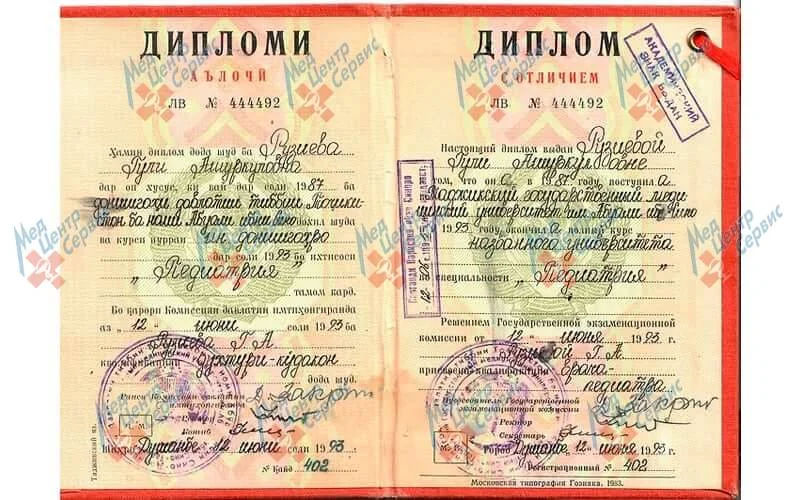 ДИПЛОМИ
АЪЛОЧӢ
ЛВ № 444492
Ҳамин диплом дода шуд ба Рузиева
Гули Ашуркуловна
дар он хусус, ки вай дар соли 1987 ба
донишгоҳи давлатии тиббии Тоҷики-
стон ба номи Абӯалӣ ибни Сино дохил шуда
ва курси пурраи ин донишгоҳро
дар соли 1993 ба ихтисоси
„Педиатрия”
тамом кард.
Бо қарори Комиссияи давлатии имтиҳонгиранда
аз „12” июни соли 1993 ба
Рузиева Г. А.
квалификацияи духтури-кӯдакон
дода шуд.
Раиси Комиссияи давлатии
имтиҳонгиранда
Ректор
Котиб
М. М.
Шаҳри Душанбе 12 июни 1993
№ Қайд 402
Таджикский яз.
ДИПЛОМ
С ОТЛИЧИЕМ
ЛВ № 444492
АКАДЕМИЧЕСКИЙ
ЗНАК ВЫДАН
Настоящий диплом выдан Рузиевой
Гули Ашуркуловне
в том, что она в 1987 году поступила в
Таджикский государственный меди-
цинский университет им. Абуали ибн Сино
и в 1993 году окончила полный курс
названного университета
по специальности „Педиатрия”
Решением Государственной экзаменационной
комиссии от „12” июня 1993 г.
Рузиевой Г. А.
присвоена квалификация врача-
педиатра
Председатель Государственной
экзаменационной комиссии
Ректор
Секретарь
М. П.
Город Душанбе, 12 июня 1993 г.
Регистрационный № 402
Московская типография Гознака. 1983.
Мед Центр Сервис